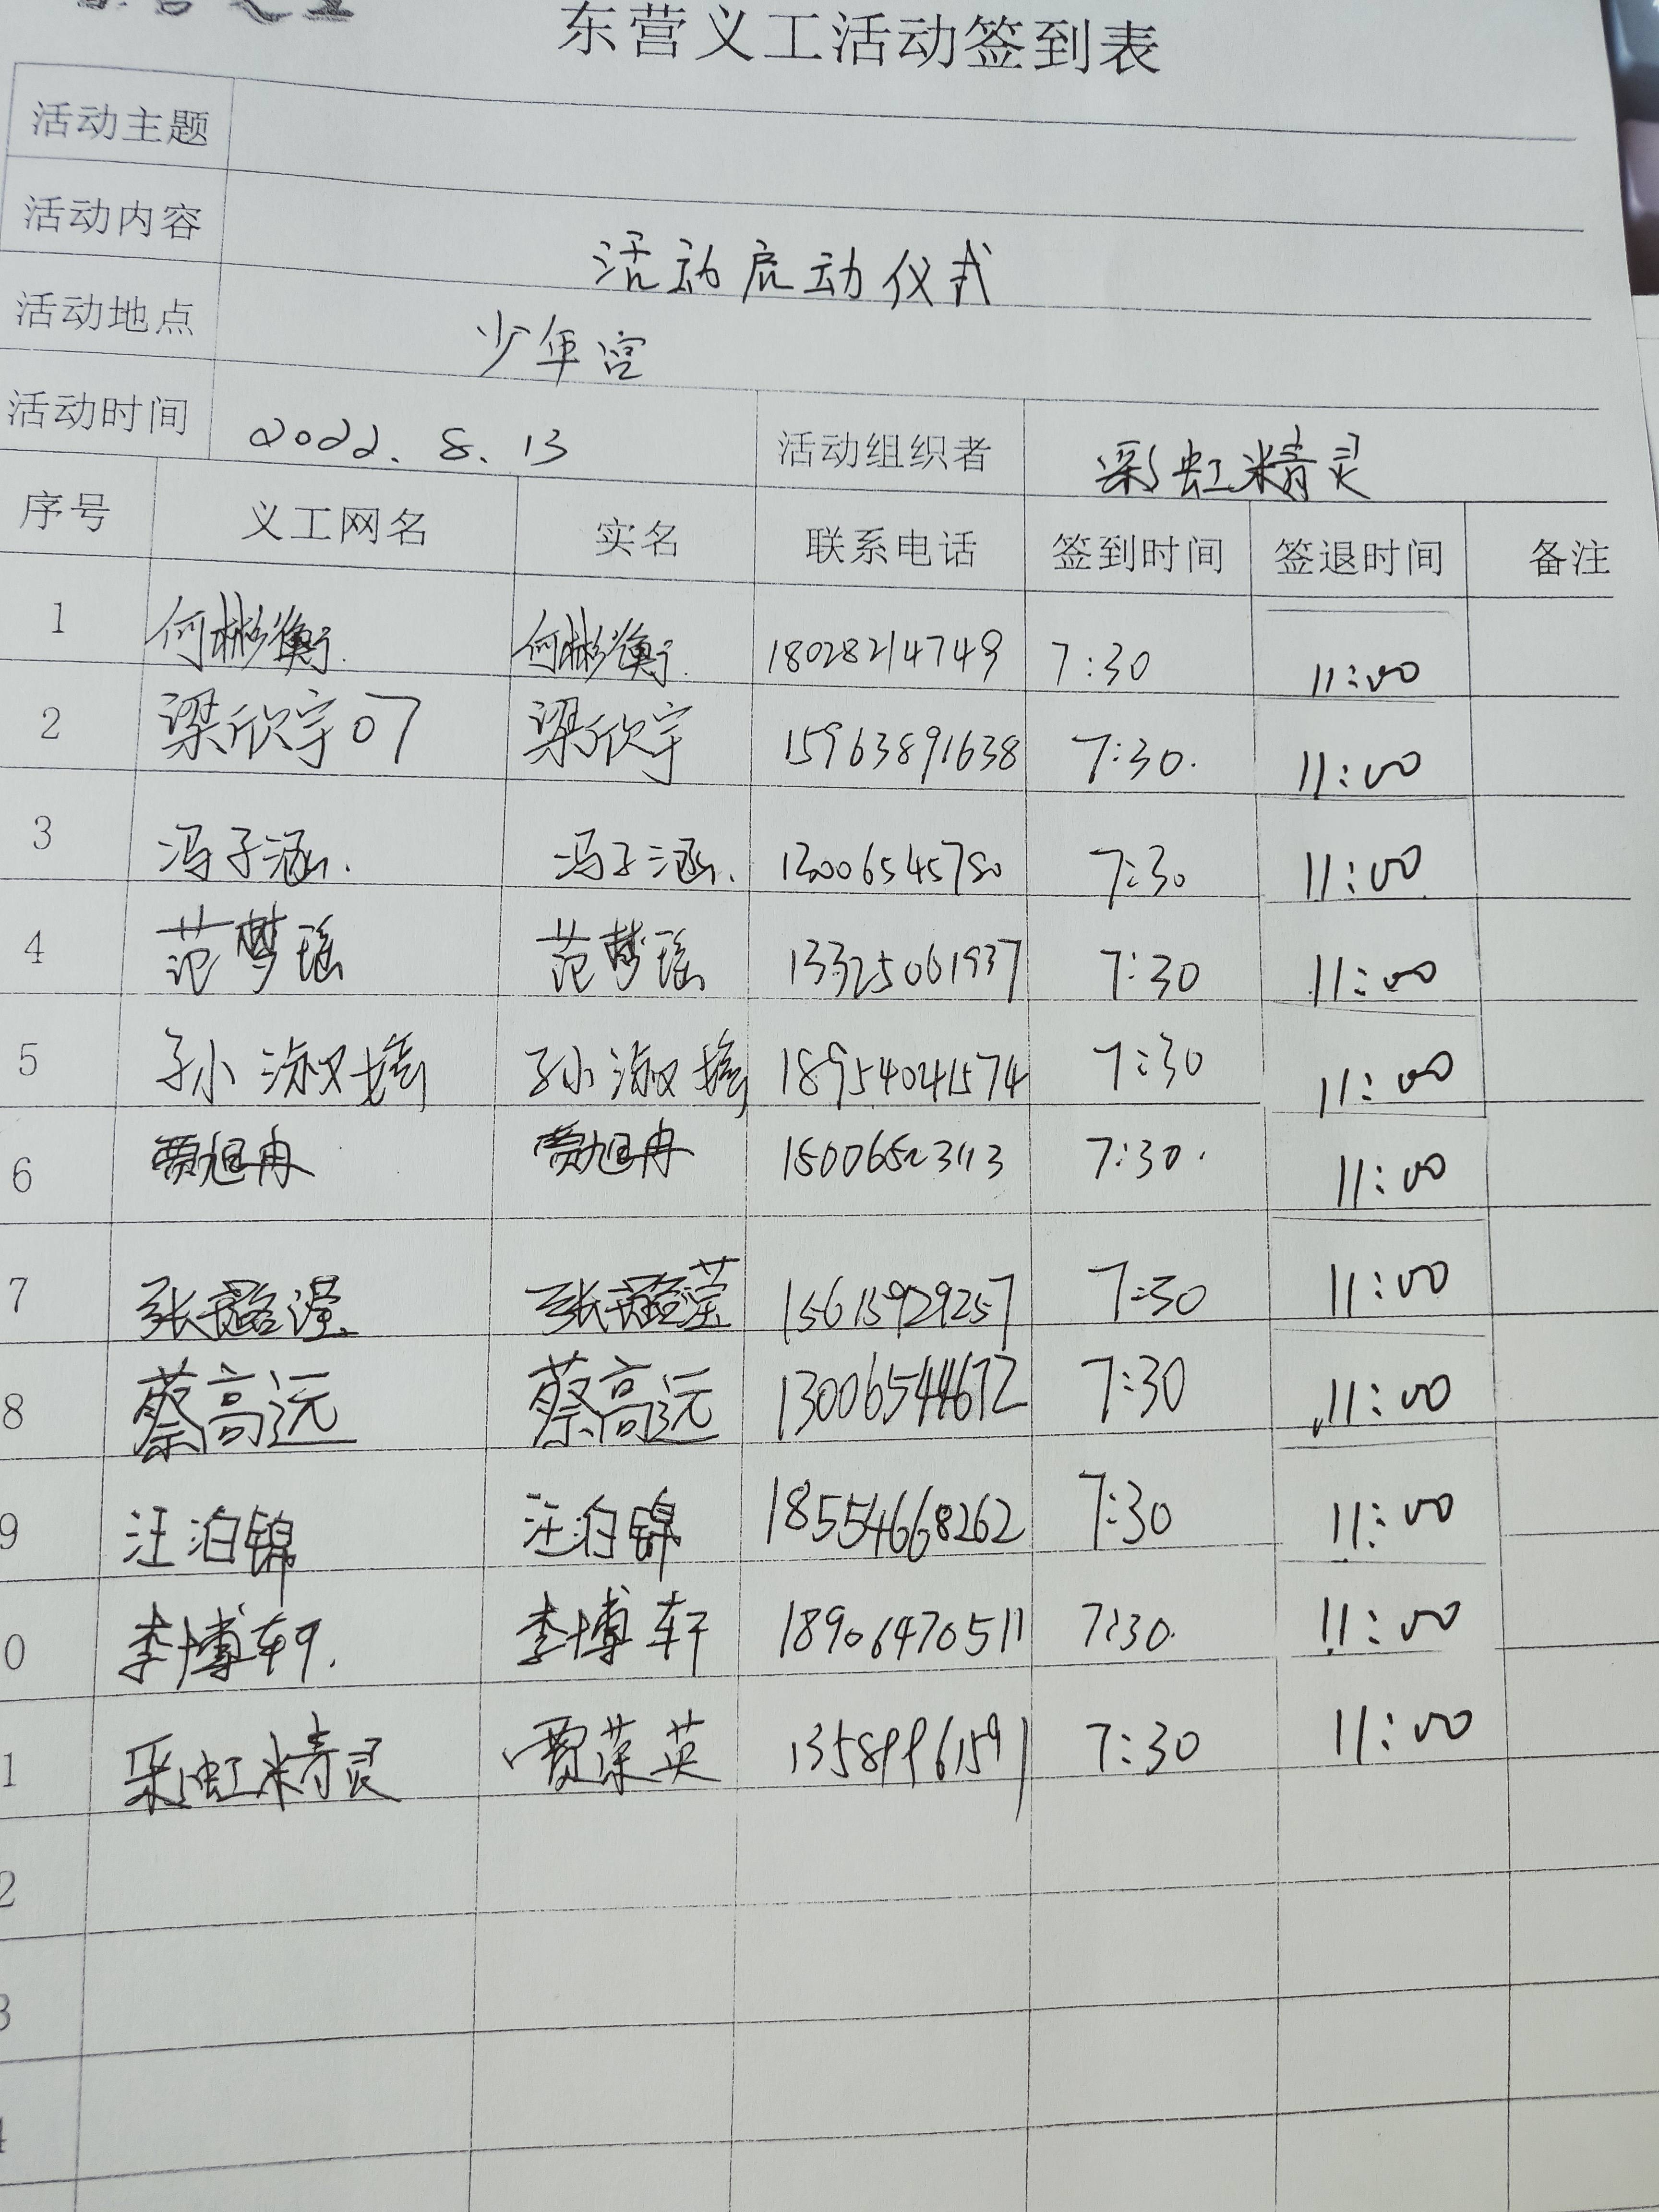 东营义工活动签到表
活动主题
活动内容 活动启动仪式
活动地点 少年宫
活动时间 2022.8.13 活动组织者 彩虹精灵
序号 义工网名 实名 联系电话 签到时间 签退时间 备注
1 何彬衡. 何彬衡. 18028214749 7:30 11:00
2 梁欣宇07 梁欣宇 15963891638 7:30. 11:00
3 冯子涵. 冯子涵. 13006545780 7:30 11:00
4 范梦瑶 范梦瑶 13325061937 7:30 11:00
5 孙淑婷 孙淑婷 18954041574 7:30 11:00
6 贾旭冉 贾旭冉 7:30. 11:00
7 张 张 15615929257 7:30 11:00
8 蔡高远 蔡高远 13006544672 7:30 11:00
9 汪泊锦 汪泊锦 18554668262 7:30 11:00
0 李博轩. 李博轩 18906470511 7:30. 11:00
1 彩虹精灵 贾葆英 13589961591 7:30 11:00
2
3